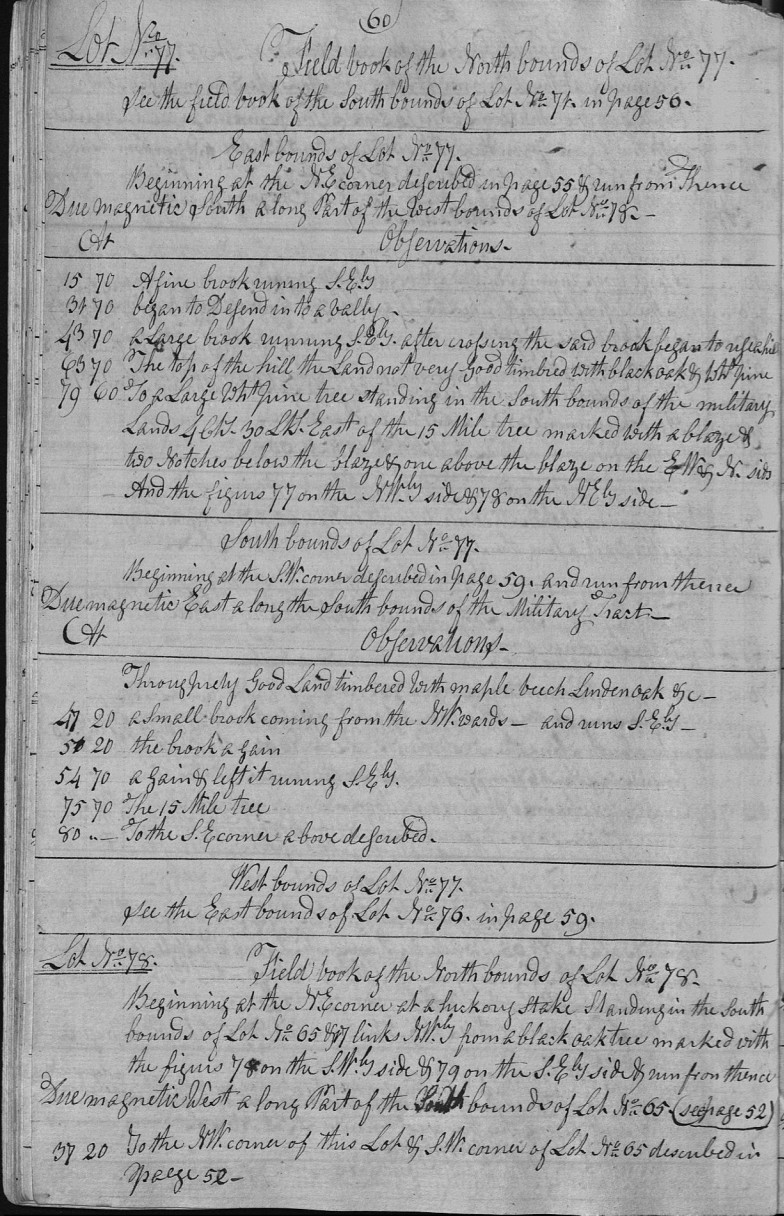 (60)
Lot No 77.
Field book of the North bounds of Lot No 77.
see the field book of the South bounds of Lot No 74. in page 56.
East bounds of Lot No 77.
Beginning at the NE corner described in page 55 & run from Thence
Due magnetic South along Part of the West bounds of Lot No 78 —
C At Observations.
15 70 A fine brook runing S.Ely
34 70 began to Desend in to a vally.
43 70 a Large brook running S.Ely. after crossing the said brook began to rise a hill
63 70 The top of the hill the Land not very Good timbred with black oak & Wht pine
79 60 To a Large Wht pine tree standing in the South bounds of the military
Lands 4 Chs. 30 Lks. East of the 15 Mile tree marked with a blaze &
two Notches below the blaze & one above the blaze on the E W & N. side
And the figurs 77 on the NWly side & 78 on the NEly side —
South bounds of Lot No 77.
Beginning at the S.W. corner described in page 59. and run from thence
Due magnetic East along the South bounds of the Military Tract —
C At Observations —
Through prety Good Land timbered with maple beech Linden oak &c —
47 20 a small brook coming from the NW.wards — and runs S.Ely —
50 20 the brook again
54 70 again & left it runing S.Ely.
75 70 The 15 Mile tree
80 „ — To the S.E corner above described.
West bounds of Lot No 77.
see the East bounds of Lot No 76. in page 59.
Lot No 78.
Field book of the North bounds of Lot No 78.
Beginning at the NE corner at a hickory Stake Standing in the South
bounds of Lot No 65 & 17 links NWly from a black oak tree marked with
the figurs 78 on the S.Wly side & 79 on the S.Ely side & run from thence
Due magnetic West along Part of the South bounds of Lot No 65 (see page 52)
37 20 To the NW. corner of this Lot & S.W. corner of Lot No 65 described in
paege 52 —